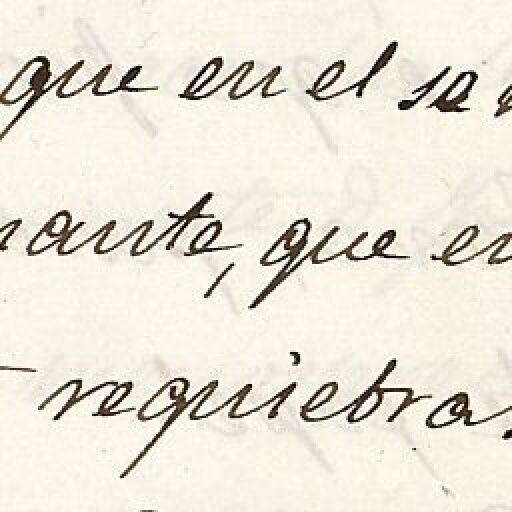 que en el
nante, que en
requiebra